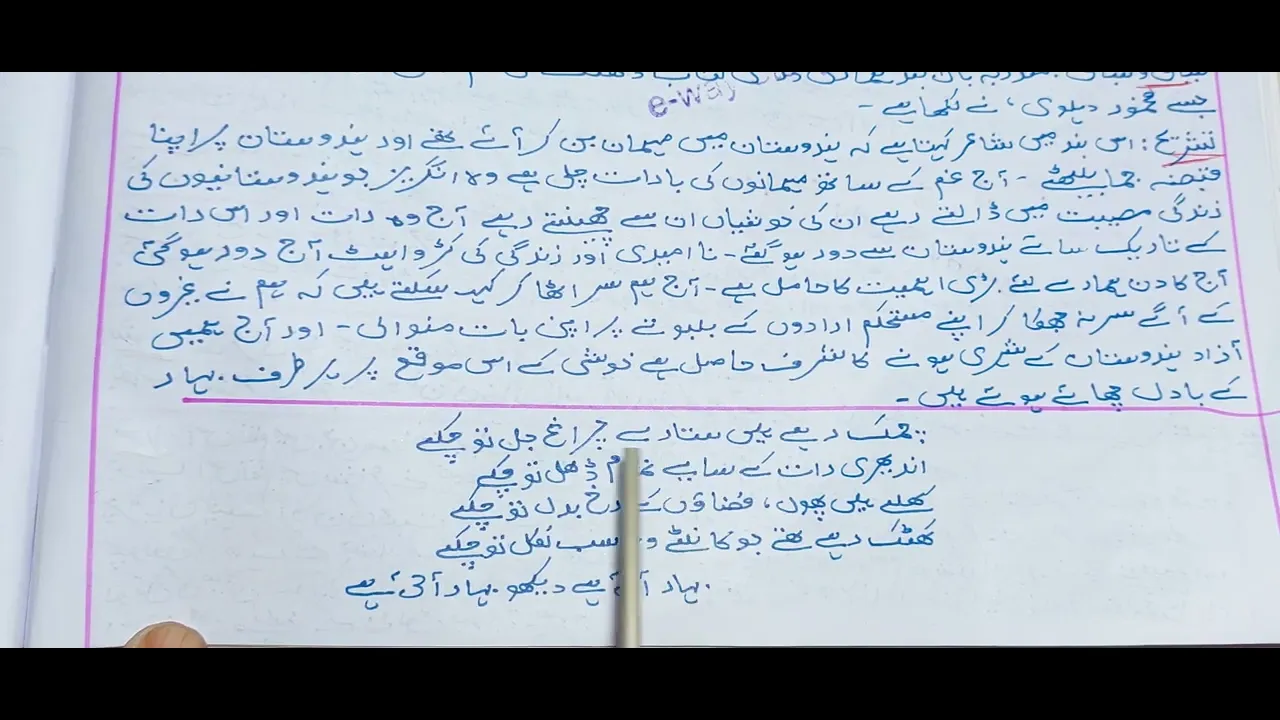 جسے مخمور دہلوی، نے لکھا ہے -
e-way
تشریح: اس بند میں شاعر کہتا ہے کہ ہندوستان میں مہمان بن کر آئے تھے اور ہندوستان پر اپنا
قبضہ جما بیٹھے - آج غم کے ساتھ مہمانوں کی بارات چل ہے وہ انگریز جو ہندوستانیوں کی
زندگی مصیبت میں ڈالتے رہے ان کی خوشیاں ان سے چھینتے رہے آج وہ رات اور اس رات
کے تاریک سائے ہندوستان سے دور ہو گئے - نا امیدی اور زندگی کی کڑواہٹ آج دور ہو گئی
آج کا دن ہمارے لئے بڑی اہمیت کا حامل ہے - آج ہم سر اٹھا کر کہہ سکتے ہیں کہ ہم نے غیروں
کے آگے سر نہ جھکا کر اپنے مستحکم ارادوں کے بلبوتے پر اپنی بات منوالی - اور آج ہمیں
آزاد ہندوستان کے شہری ہونے کا شرف حاصل ہے خوشی کے اس موقع پر ہر طرف بہار
کے بادل چھائے ہوئے ہیں -
چمک رہے ہیں ستارے چراغ جل تو چکے
اندھیری رات کے سایے ڈھل تو چکے
کھلے ہیں پھول، فضاؤں کے رخ بدل تو چکے
کھٹک رہے تھے جو کانٹے وہ سب نکل تو چکے
بہار آئی ہے دیکھو بہار آئی ہے